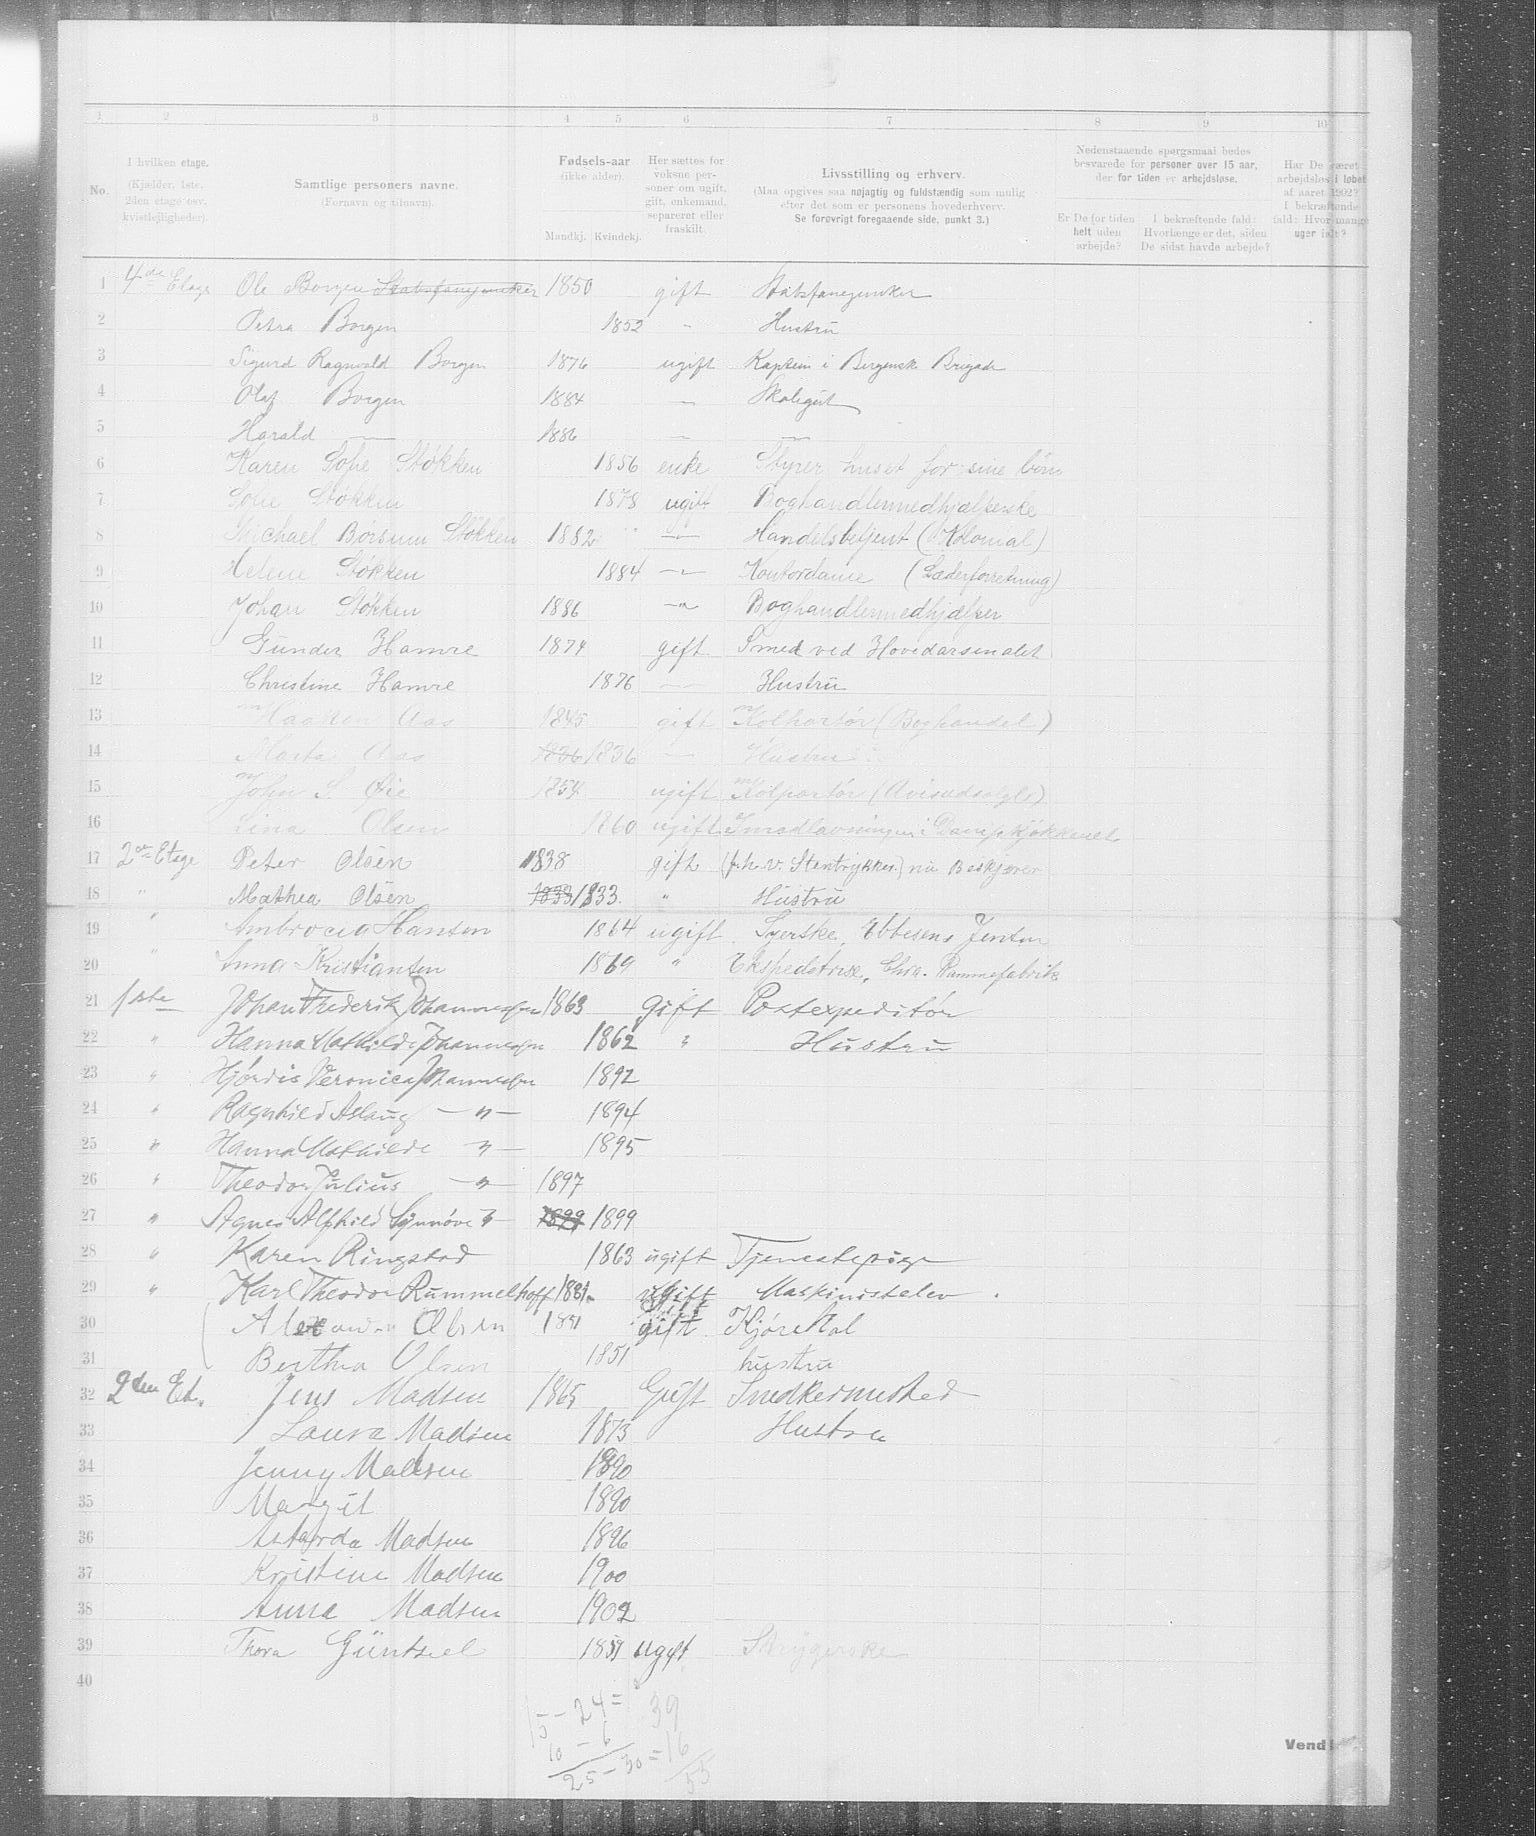 1 2 3 4 5 6 7 8 9 10
I hvilken etage. (Kjælder, 1ste, 2den etage osv. kvistlejligheder).
No.
Samtlige personers navne.
(Fornavn og tilnavn).
Fødsels-aar
(ikke alder).
Mandkj. Kvindekj.
Her sættes for voksne personer om ugift, gift, enkemand, separeret eller fraskilt.
Livsstilling og erhverv.
(Maa opgives saa nøjagtig og fuldstændig som mulig efter det som er personens hovederhverv.
Se forøvrigt foregaaende side, punkt 3.)
Nedenstaaende spørgsmaal bedes besvarede for personer over 15 aar, der for tiden er arbejdsløse.
Er De for tiden helt uden arbejde?
I bekræftende fald: Hvorlænge er det, siden De sidst havde arbejde?
Har De været arbejdsløs i løbet af aaret 1902? I bekræftende fald: Hvor mange uger ialt?
1 4de Etage Ole Borgen Stabsfanejunker 1850 gift Stabsfanejunker
2 Petra Borgen 1852 " Hustru
3 Sigurd Ragnvald Borgen 1876 ugift Kaptein i Bergensk Brigade
4 Olaf Borgen 1884 — Skolegut
5 Harald — 1886 — —
6 Karen Sofie Støkken 1856 enke Styrer huset for sine børn
7 Sofie Støkken 1878 ugift Boghandlermedhjælperske
8 Michael Børsum Støkken 1882 —"— Handelsbetjent (Kolonial)
9 Helene Støkken 1884 —"— Kontordame (Læderforretning)
10 Johan Støkken 1886 —"— Boghandlermedhjælper
11 Gunder Hamre 1874 gift Smed ved Hovedarsenalet
12 Christine Hamre 1876 — Hustru
13 Haaken Aas 1845 gift Kolportør (Boghandel)
14 Marta Aas 1836 1836 — Hustru
15 John S. Øie 1854 ugift Kolportør (Avisudsalg)
16 Lina Olsen 1860 ugift i Dampkjøkkenet
17 2den Etage Peter Olsen 1838 gift (f.h.v. Stentrykker) nu Beskjærer
18 " Mathea Olsen 1833 1833. " Hustru
19 " Ambrocia Hansen 1864 ugift Syerske, Ebbesens
20 " Anna Kristiansen 1869 " Ekspeditrise, Chra. Rammefabrik
21 1ste Johan Frederik Johannessen 1863 gift Postexpeditør
22 " Hanna Mathilde Johannessen 1862 " Hustru
23 " Hjørdis Veronica Johannessen 1892
24 " Ragnhild Aslaug —"— 1894
25 " Hanna Mathilde —"— 1895
26 " Theodor Julius —"— 1897
27 " Agnes Alfhild Synnøve —"— 1899 1899
28 " Karen Ringstad 1863 ugift Tjenestepige
29 " Karl Theodor Rummelhoff 1881 ugift Maskinistelev.
30 Alexander Olsen 1851 gift
31 Berthea Olsen 1851 hustru
32 2den Et. Jens Madsen 1865 Gift Snedkermested
33 Laura Madsen 1873 Hustru
34 Jenny Madsen 1890
35 Margit 1890
36 Madsen 1896
37 Kristine Madsen 1900
38 Anna Madsen 1902
39 Thora Güntzel 1851 ugift Strygerske
40
15 - 24 = 39
10 - 6 = 16
25 - 30 55
Vend!